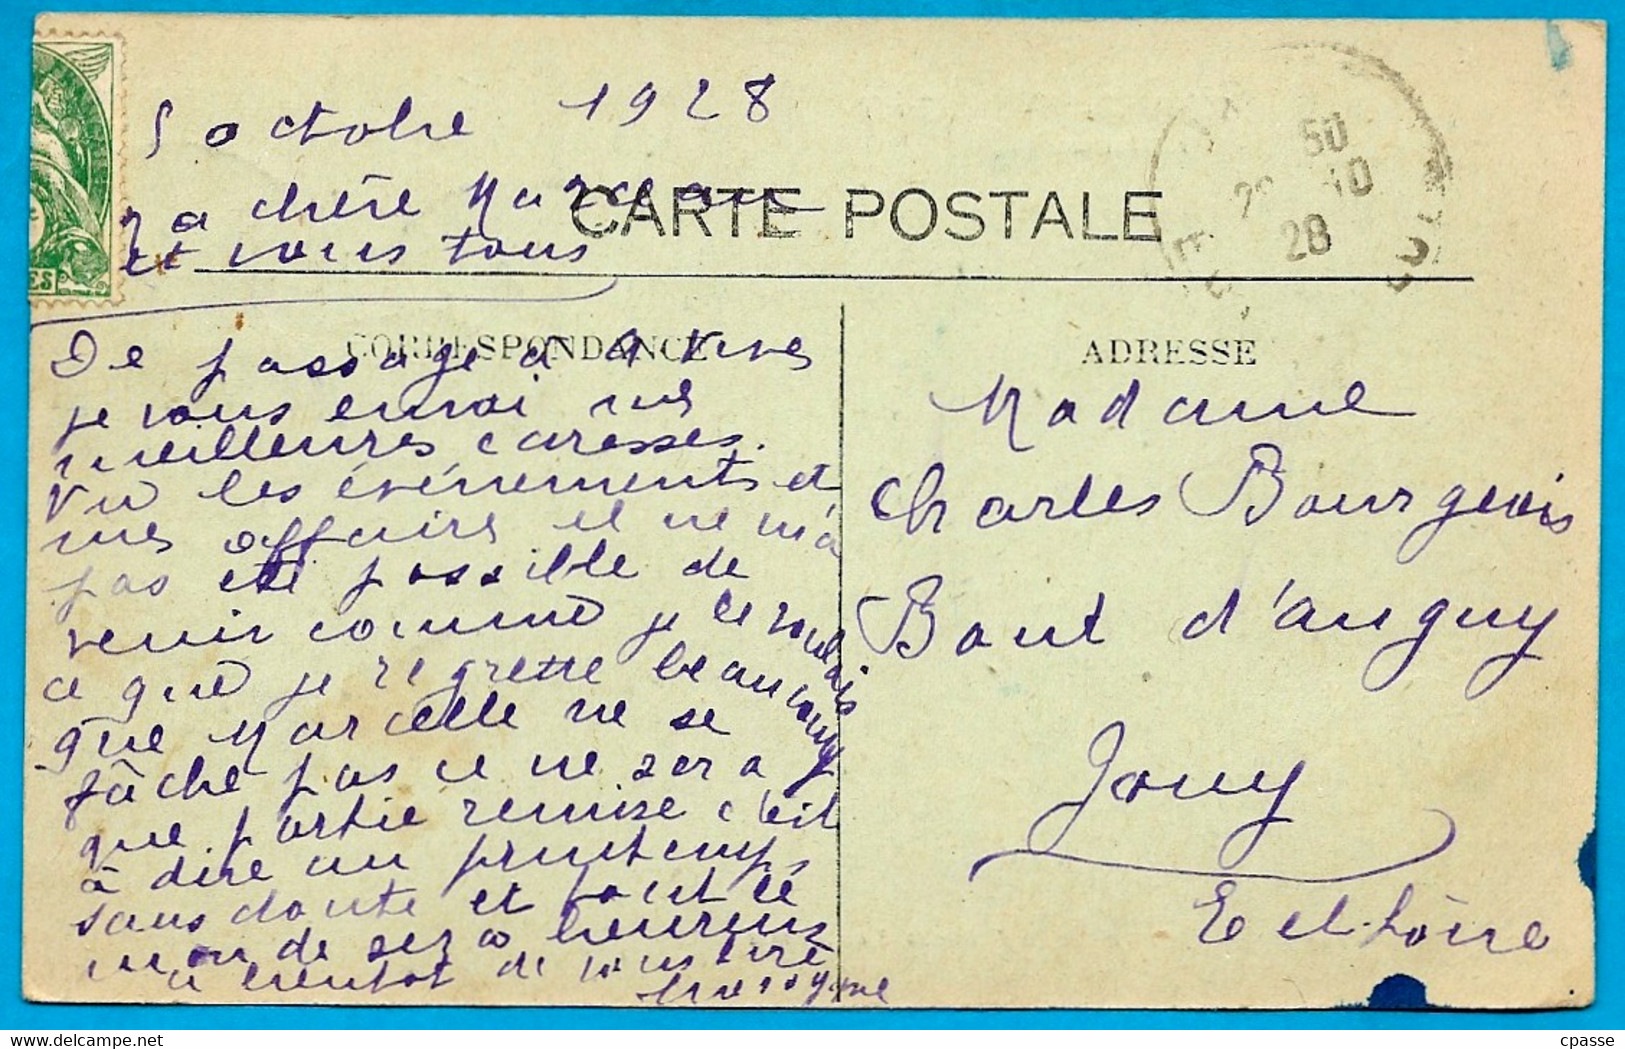 5 octobre 1928
Ma chère Maman
et vous tous
CARTE POSTALE
CORRESPONDANCE
De passage à
je vous envoi mes
meilleures caresses.
Vu les événements et
mes affaires il ne m'a
pas été possible de
venir comme je le voulais
ce que je regrette beaucoup
que Marcelle ne se
fâche pas ce ne sera
que partie remise c'est
à dire au printemps
sans doute et tout le
monde sera heureux
a bientot de vous lire
ADRESSE
Madame
Charles Bourgeois
Bout d'anguy
Jouy
E et Loire
50
10
28
ES
cpasse